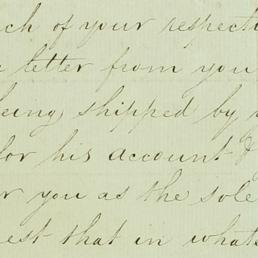 ch of your respecti
letter from you
eing shipped by
for his account &
r you as the sole
est that in whats